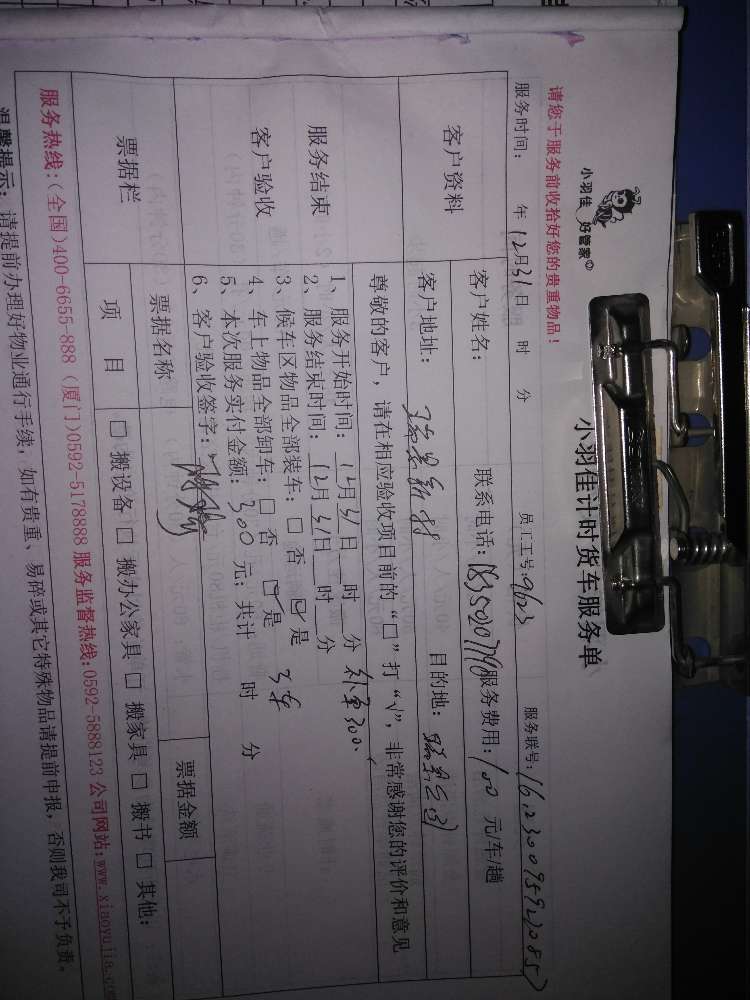 小羽佳 好管家©
小羽佳计时货车服务单
请您于服务前收拾好您的贵重物品！
服务时间： 年12月31日 时 分 员工工号：9623 服务联号：
客户资料
客户姓名： 联系电话： 服务费用：100 元/车/趟
客户地址：瑞景新村 目的地：瑞景公园
尊敬的客户，请在相应验收项目前的“□”打“√”，非常感谢您的评价和意见
服务结束
客户验收
1、服务开始时间：12月31日 时 分 补单300、
2、服务结束时间：12月31日 时 分
3、候车区物品全部装车：□ 否 ☑ 是
4、车上物品全部卸车：□ 否 ☑ 是 3车
5、本次服务实付金额：300 元；共计 时 分
6、客户验收签字：
票据栏
票据名称 票据金额
项 目 □ 搬设备 □ 搬办公家具 □ 搬家具 □ 搬书 □ 其他：
服务热线：(全国)400-6655-888 (厦门)0592-5178888 服务监督热线:0592-5888123 公司网站:www.xiaoyujia.com
温馨提示：请提前办理好物业通行手续，如有贵重、易碎或其它特殊物品请提前申报，否则我司不予负责。